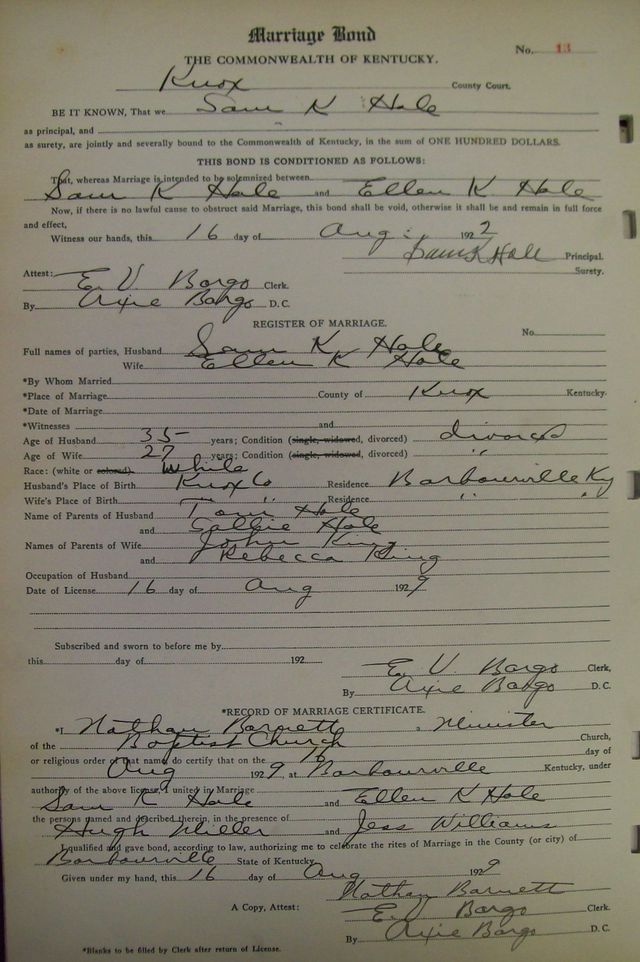 Marriage Bond
No. 13
THE COMMONWEALTH OF KENTUCKY.
Knox County Court.
BE IT KNOWN, That we Sam K Hale
as principal, and
as surety, are jointly and severally bound to the Commonwealth of Kentucky, in the sum of ONE HUNDRED DOLLARS.
THIS BOND IS CONDITIONED AS FOLLOWS:
That, whereas Marriage is intended to be solemnized between
Sam K Hale and Ellen K Hale
Now, if there is no lawful cause to obstruct said Marriage, this bond shall be void, otherwise it shall be and remain in full force
and effect,
Witness our hands, this 16 day of Aug. 1922
Sam K Hale Principal.
Surety.
Attest: E V Bargo Clerk.
By Arxie Bargo D. C.
REGISTER OF MARRIAGE.
No.
Full names of parties, Husband Sam K Hale
Wife Ellen K Hale
*By Whom Married
*Place of Marriage County of Knox Kentucky.
*Date of Marriage
*Witnesses and
Age of Husband 35 years; Condition (single, widowed, divorced) divorced
Age of Wife 27 years; Condition (single, widowed, divorced) "
Race: (white or colored) White
Husband's Place of Birth Knox Co Residence Barbourville Ky
Wife's Place of Birth " " Residence " "
Name of Parents of Husband Tom Hale
and Sallie Hale
Names of Parents of Wife John King
and Rebecca King
Occupation of Husband
Date of License 16 day of Aug 1929
Subscribed and sworn to before me by
this day of 192
E. V Bargo Clerk,
By Arxie Bargo D. C.
*RECORD OF MARRIAGE CERTIFICATE.
*I Nathan Barnett, a Minister
of the Baptist Church Church,
or religious order of that name, do certify that on the 16 day of
Aug 1929, at Barbourville Kentucky, under
authority of the above license, I united in Marriage
Sam K Hale and Ellen K Hale
the persons named and described therein, in the presence of
Hugh Miller and Jess Williams
I qualified and gave bond, according to law, authorizing me to celebrate the rites of Marriage in the County (or city) of
Barbourville State of Kentucky.
Given under my hand, this 16 day of Aug 1929
Nathan Barnett
A Copy, Attest: E. V Bargo Clerk.
By Arxie Bargo D. C.
*Blanks to be filled by Clerk after return of License.